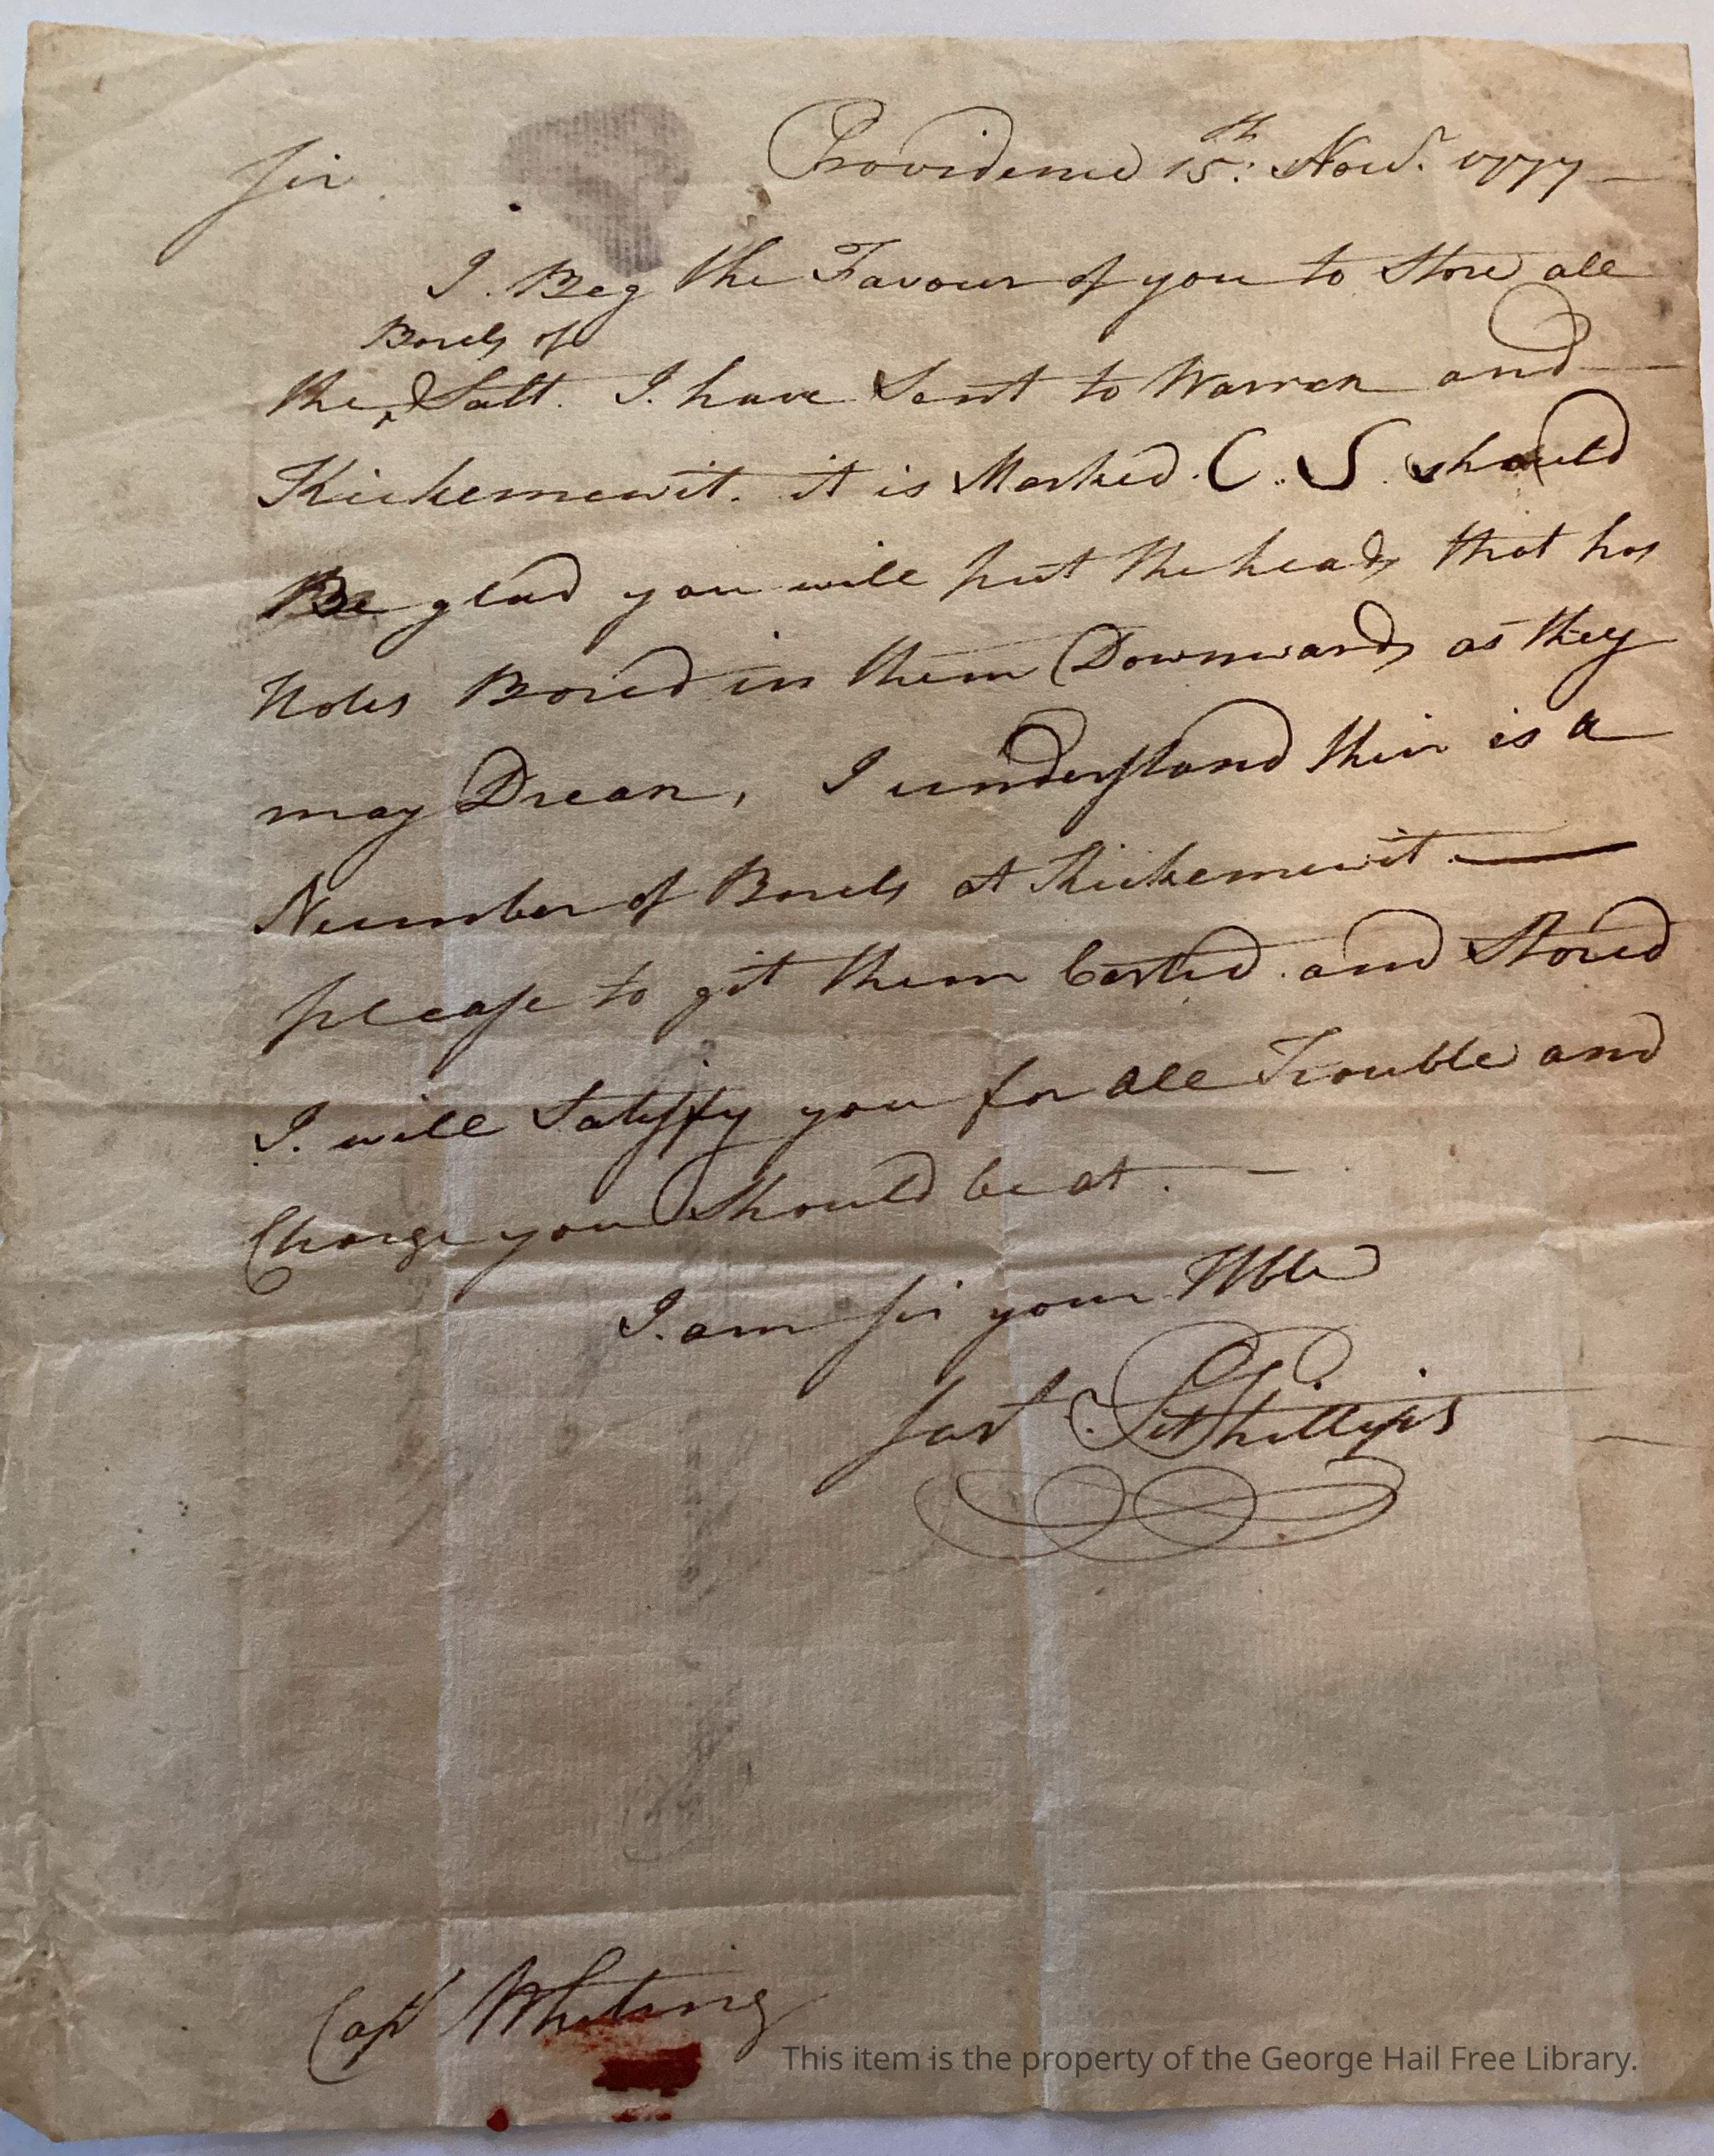 Providence 15th: Novr. 1777
Sir
I. Beg the Favour of you to Store all
Borels of
the ^ Salt. I. have Sent to Warren and
Kickemewit. it is Marked. C.. S. should
Be glad you will put the heads that has
Holes Bored in them Downwards as they
may Drean, I understand their is a
Number of Borels at Kickemewit.
please to git them Carted. and Stored
I. will Satisfy you for All Trouble and
Charge you Should be at.
I. am Sir your Hble
Sart Phillips
Capt Whiting
This item is the property of the George Hail Free Library.